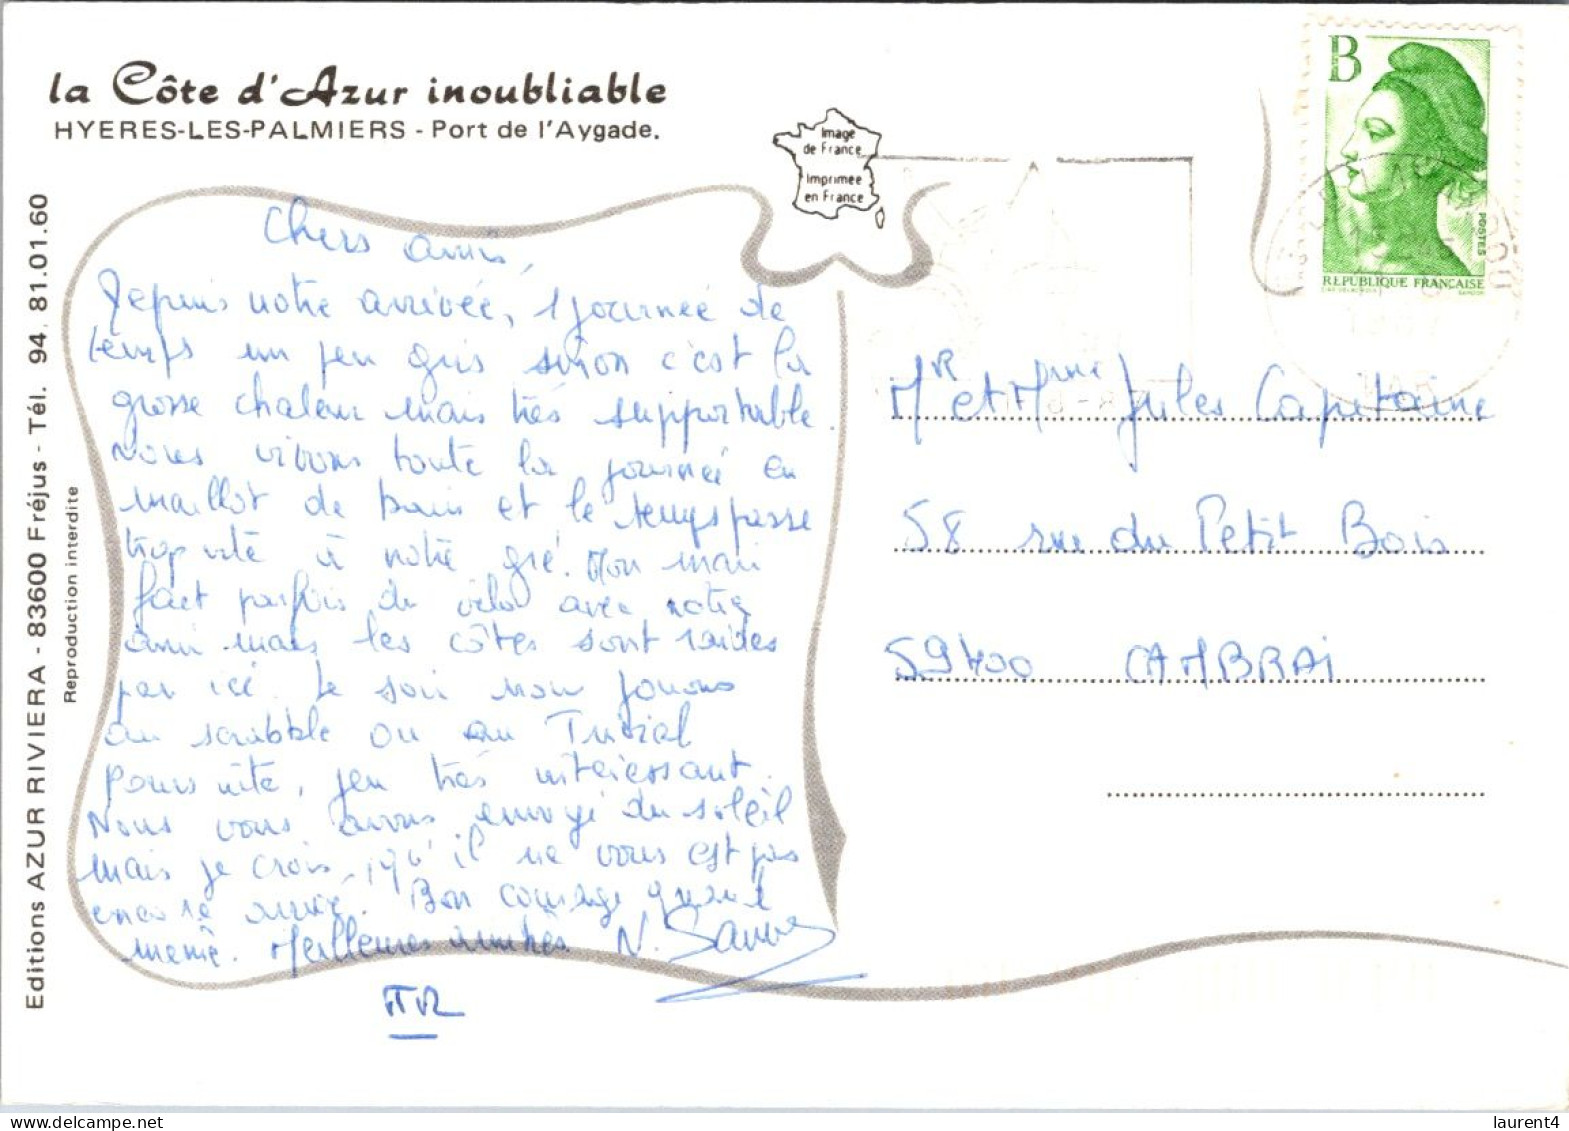 la Côte d'Azur inoubliable
HYERES-LES-PALMIERS - Port de l'Aygade.
Image
de France
Imprimée
en France
B
POSTES
REPUBLIQUE FRANÇAISE
Editions AZUR RIVIERA - 83600 Fréjus - Tél. 94. 81.01.60
Reproduction interdite
Chers amis,
Depuis notre arrivée, 1 journée de
temps un peu gris sinon c'est la
grosse chaleur mais très supportable.
Nous vivons toute la journée en
maillot de bain et le temps passe
trop vite à notre gré. Mon mari
fait parfois du vélo avec notre
ami mais les côtes sont raides
par ici. Le soir nous jouons
au scrabble ou au Trivial
poursuite, jeu très intéressant.
Nous vous avons envoyé du soleil
mais je crois qu'il ne vous est pas
encore arrivé. Bon courage quand
même. Meilleures amitiés N.
Mr et Mme Jules Capitaine
58 rue du Petit Bois
59400 CAMBRAI
laurent4